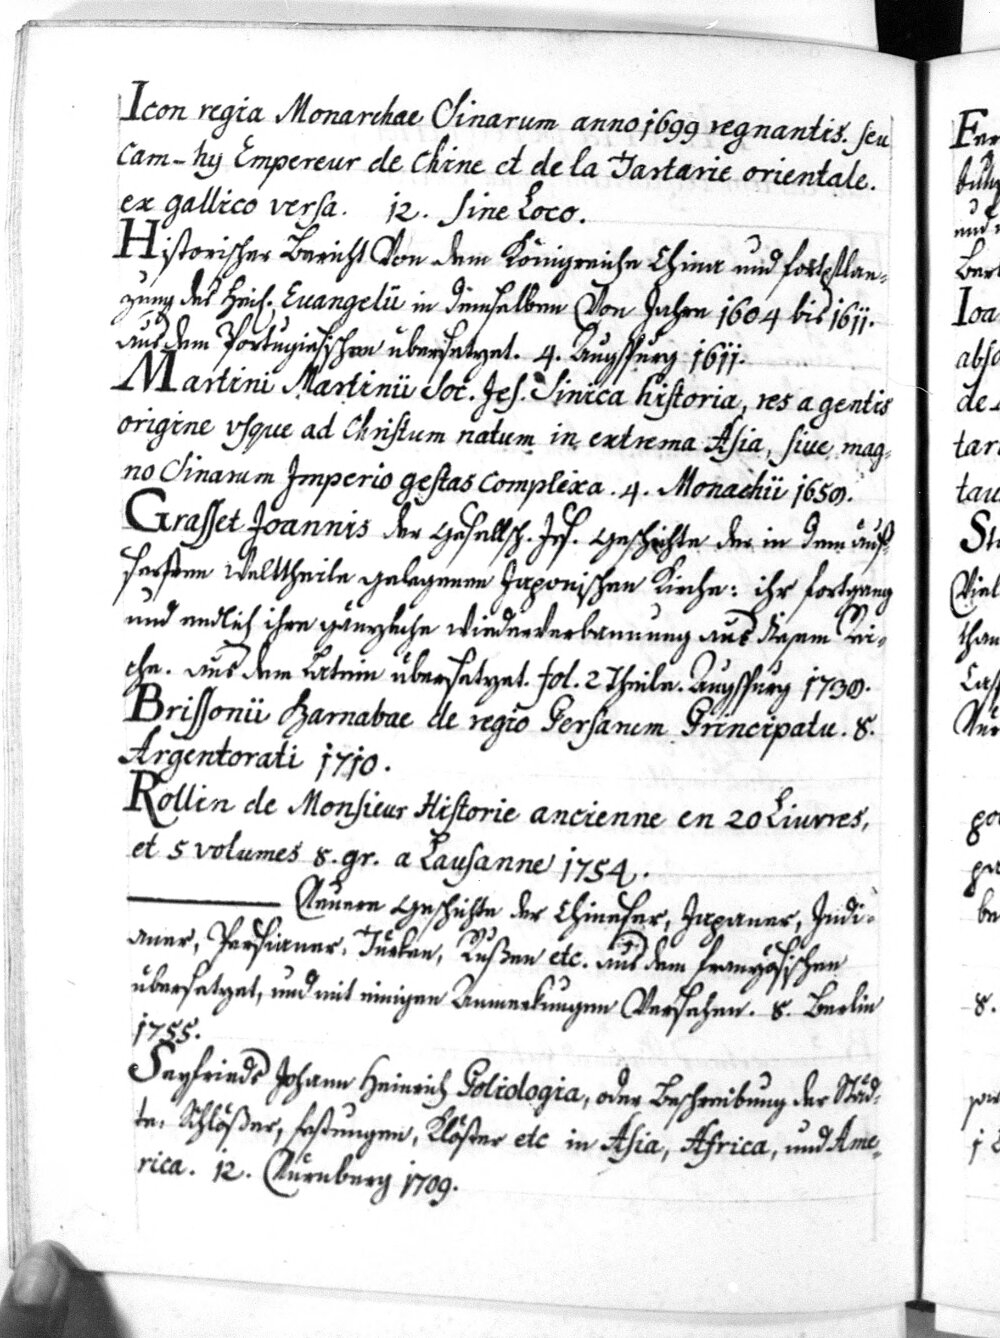 Icon regia Monarchae Sinarum anno 1699 regnantis. seu
Cam-hy Empereur de Chine et de la Tartarie orientale.
ex gallico versa. 12. sine Loco.
Historischer Bericht Von dem Königreiche China und fortpflan-
zung des Heil. Evangelii in demselben Von Jahren 1604 bis 1611.
aus dem Portugiesischen übersetzet. 4. Augspurg 1611.
Martini Martinii Soc. Jes. Sinica historia, res a gentis
origine usque ad Christum natum in extrema Asia, sive mag-
no Sinarum Imperio gestas complexa. 4. Monachii 1659.
Grasset Joannis der Gesellsch. Jes. Geschichte der in dem äus-
sersten Welttheile gelegenen Japonischen Kirche: ihr fortgang
und endlich ihre gänzliche Wiederverbannung aus diesem Rei-
che. aus dem Latein übersetzet. fol. 2 Theile. Augspurg 1738.
Brissonii Barnabae de regio Persarum Principatu. 8.
Argentorati 1710.
Rollin de Monsieur Historie ancienne en 20 Liuvres,
et 5 volumes 8. gr. a Lausanne 1754.
Neuere Geschichte der Chineser, Japaner, Indi-
aner, Persianer, Türken, Rußen etc. aus dem französischen
übersetzet, und mit einigen Anmerkungen Versehen. 8. Berlin
1755.
Seyfrieds Johann Heinrich Poliologia, oder Beschreibung der Städ-
te, Schlößer, festungen, Klöster etc in Asia, Africa, und Ame-
rica. 12. Nürnberg 1709.